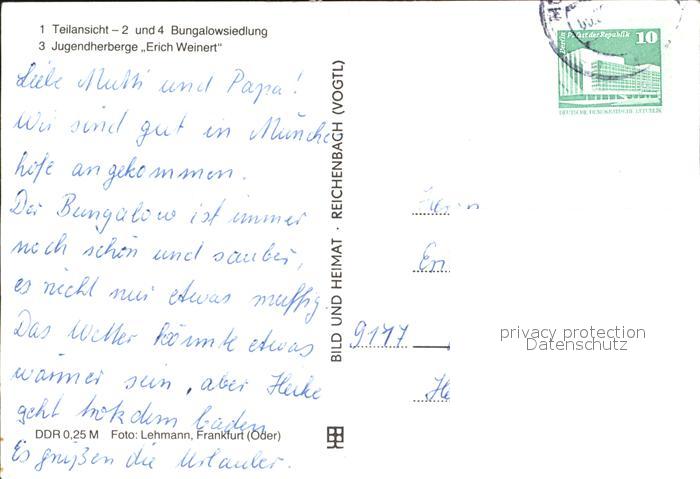 1 Teilansicht – 2 und 4 Bungalowsiedlung
3 Jugendherberge „Erich Weinert"
Liebe Mutti und Papa!
Wir sind gut in Münche
hofe angekommen.
Der Bungalow ist immer
noch schön und sauber,
es riecht nur etwas muffig.
Das Wetter könnte etwas
wärmer sein, aber Heike
geht trotzdem baden.
Es grüßen die Urlauber.
DDR 0,25 M Foto: Lehmann, Frankfurt (Oder)
BILD UND HEIMAT · REICHENBACH (VOGTL)
Berlin Palast der Republik 10
DEUTSCHE DEMOKRATISCHE REPUBLIK
9117
privacy protection
Datenschutz